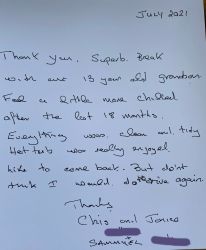 JULY 2021
Thank you. Superb. Break
with our 13 year old grandson
Feel a little more chilled
after the last 18 months.
Everything was clean and tidy
Hot tub was really enjoyed.
like to come back. But don't
think I would, drive again.
Thanks
Chis and Janice